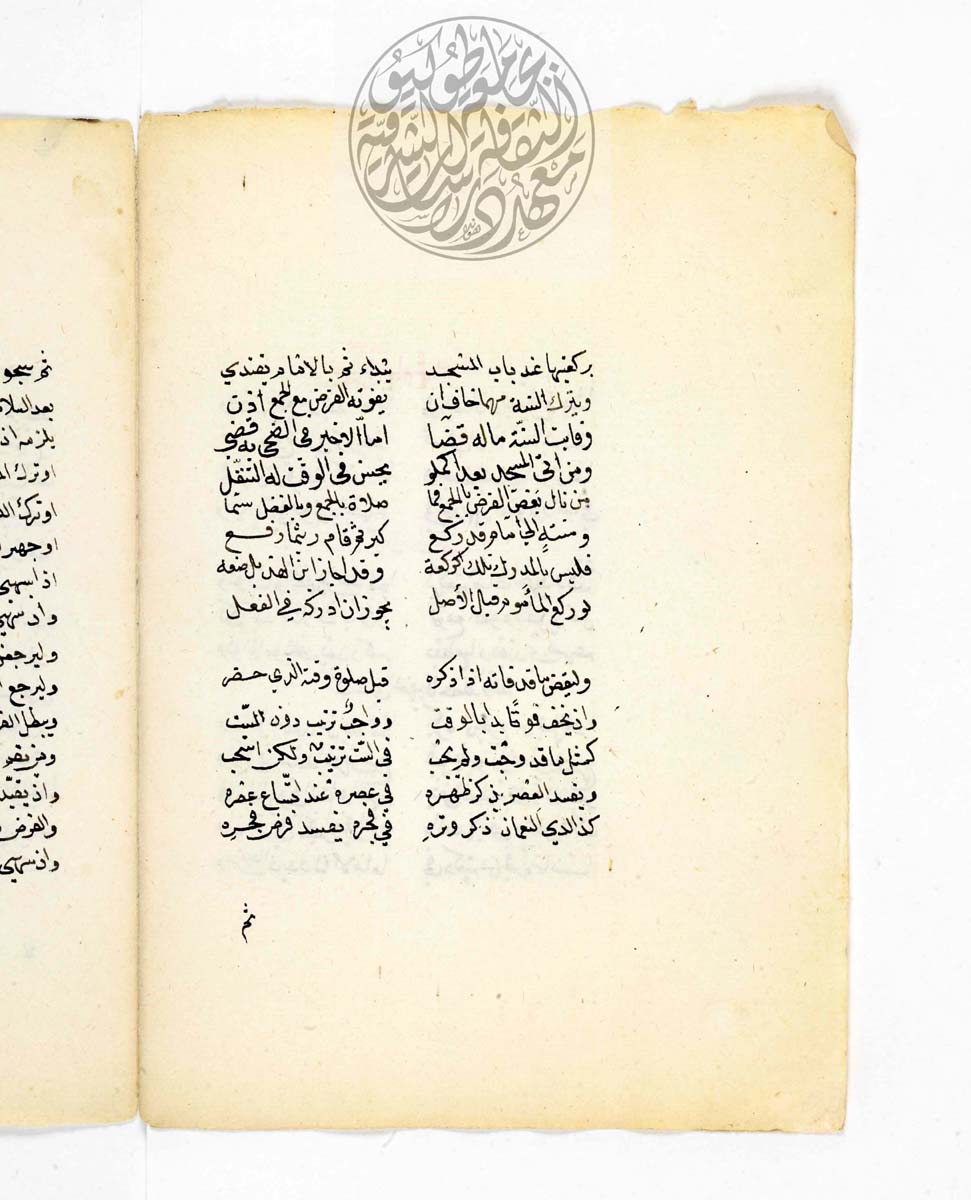 بركعتيها عند باب المسجد يبتداء ثم بالامام يقتدي
ويترك السنة مهما خاف ان يفوته الفرض مع الجمع اذن
وفايت السنة ماله قضا اما الاخير في الضحى به قضي
ومن اتى المسجد بعد اكملو يحسن في الوقت له التنفل
من نال بعض الفرض بالجمع فما صلاه بالجمع وبالفضل سما
ومنته الى امام قد ركع كبر ثم قام ريثما رفع
فليس بالمدرك تلك الركعة وقد اجاز ابن الهذيل صنعه
لو ركع المأموم قبل الأصل يجوز ان ادركه في الفعل
وليقض ما قد فاته اذا ذكره قبل صلوة وقته الذي حضر
وان يخف فوتا بدا بالوقت وواجب ترتيب دون الست
كمثل ما قد وجبت ولم يجب في الست ترتيب ولكن استحب
ويفسد العصر بذكر ظهره في عصره عند اتساع عصره
كذا لدي النعمان ذكر وتره في فجره يفسد فرض فجره
ثم
ثم سجو
بعد السلا
يلزمه اذ
او ترك ال
او ترك ال
او جهر
اذا سهى
وان سهى
وليرجعن
وليرجع ا
ويبطل الفر
وان يقيد
والفرض
وان سهى
معهد الثقافة والدراسات الشرقية جامعة طوكيو